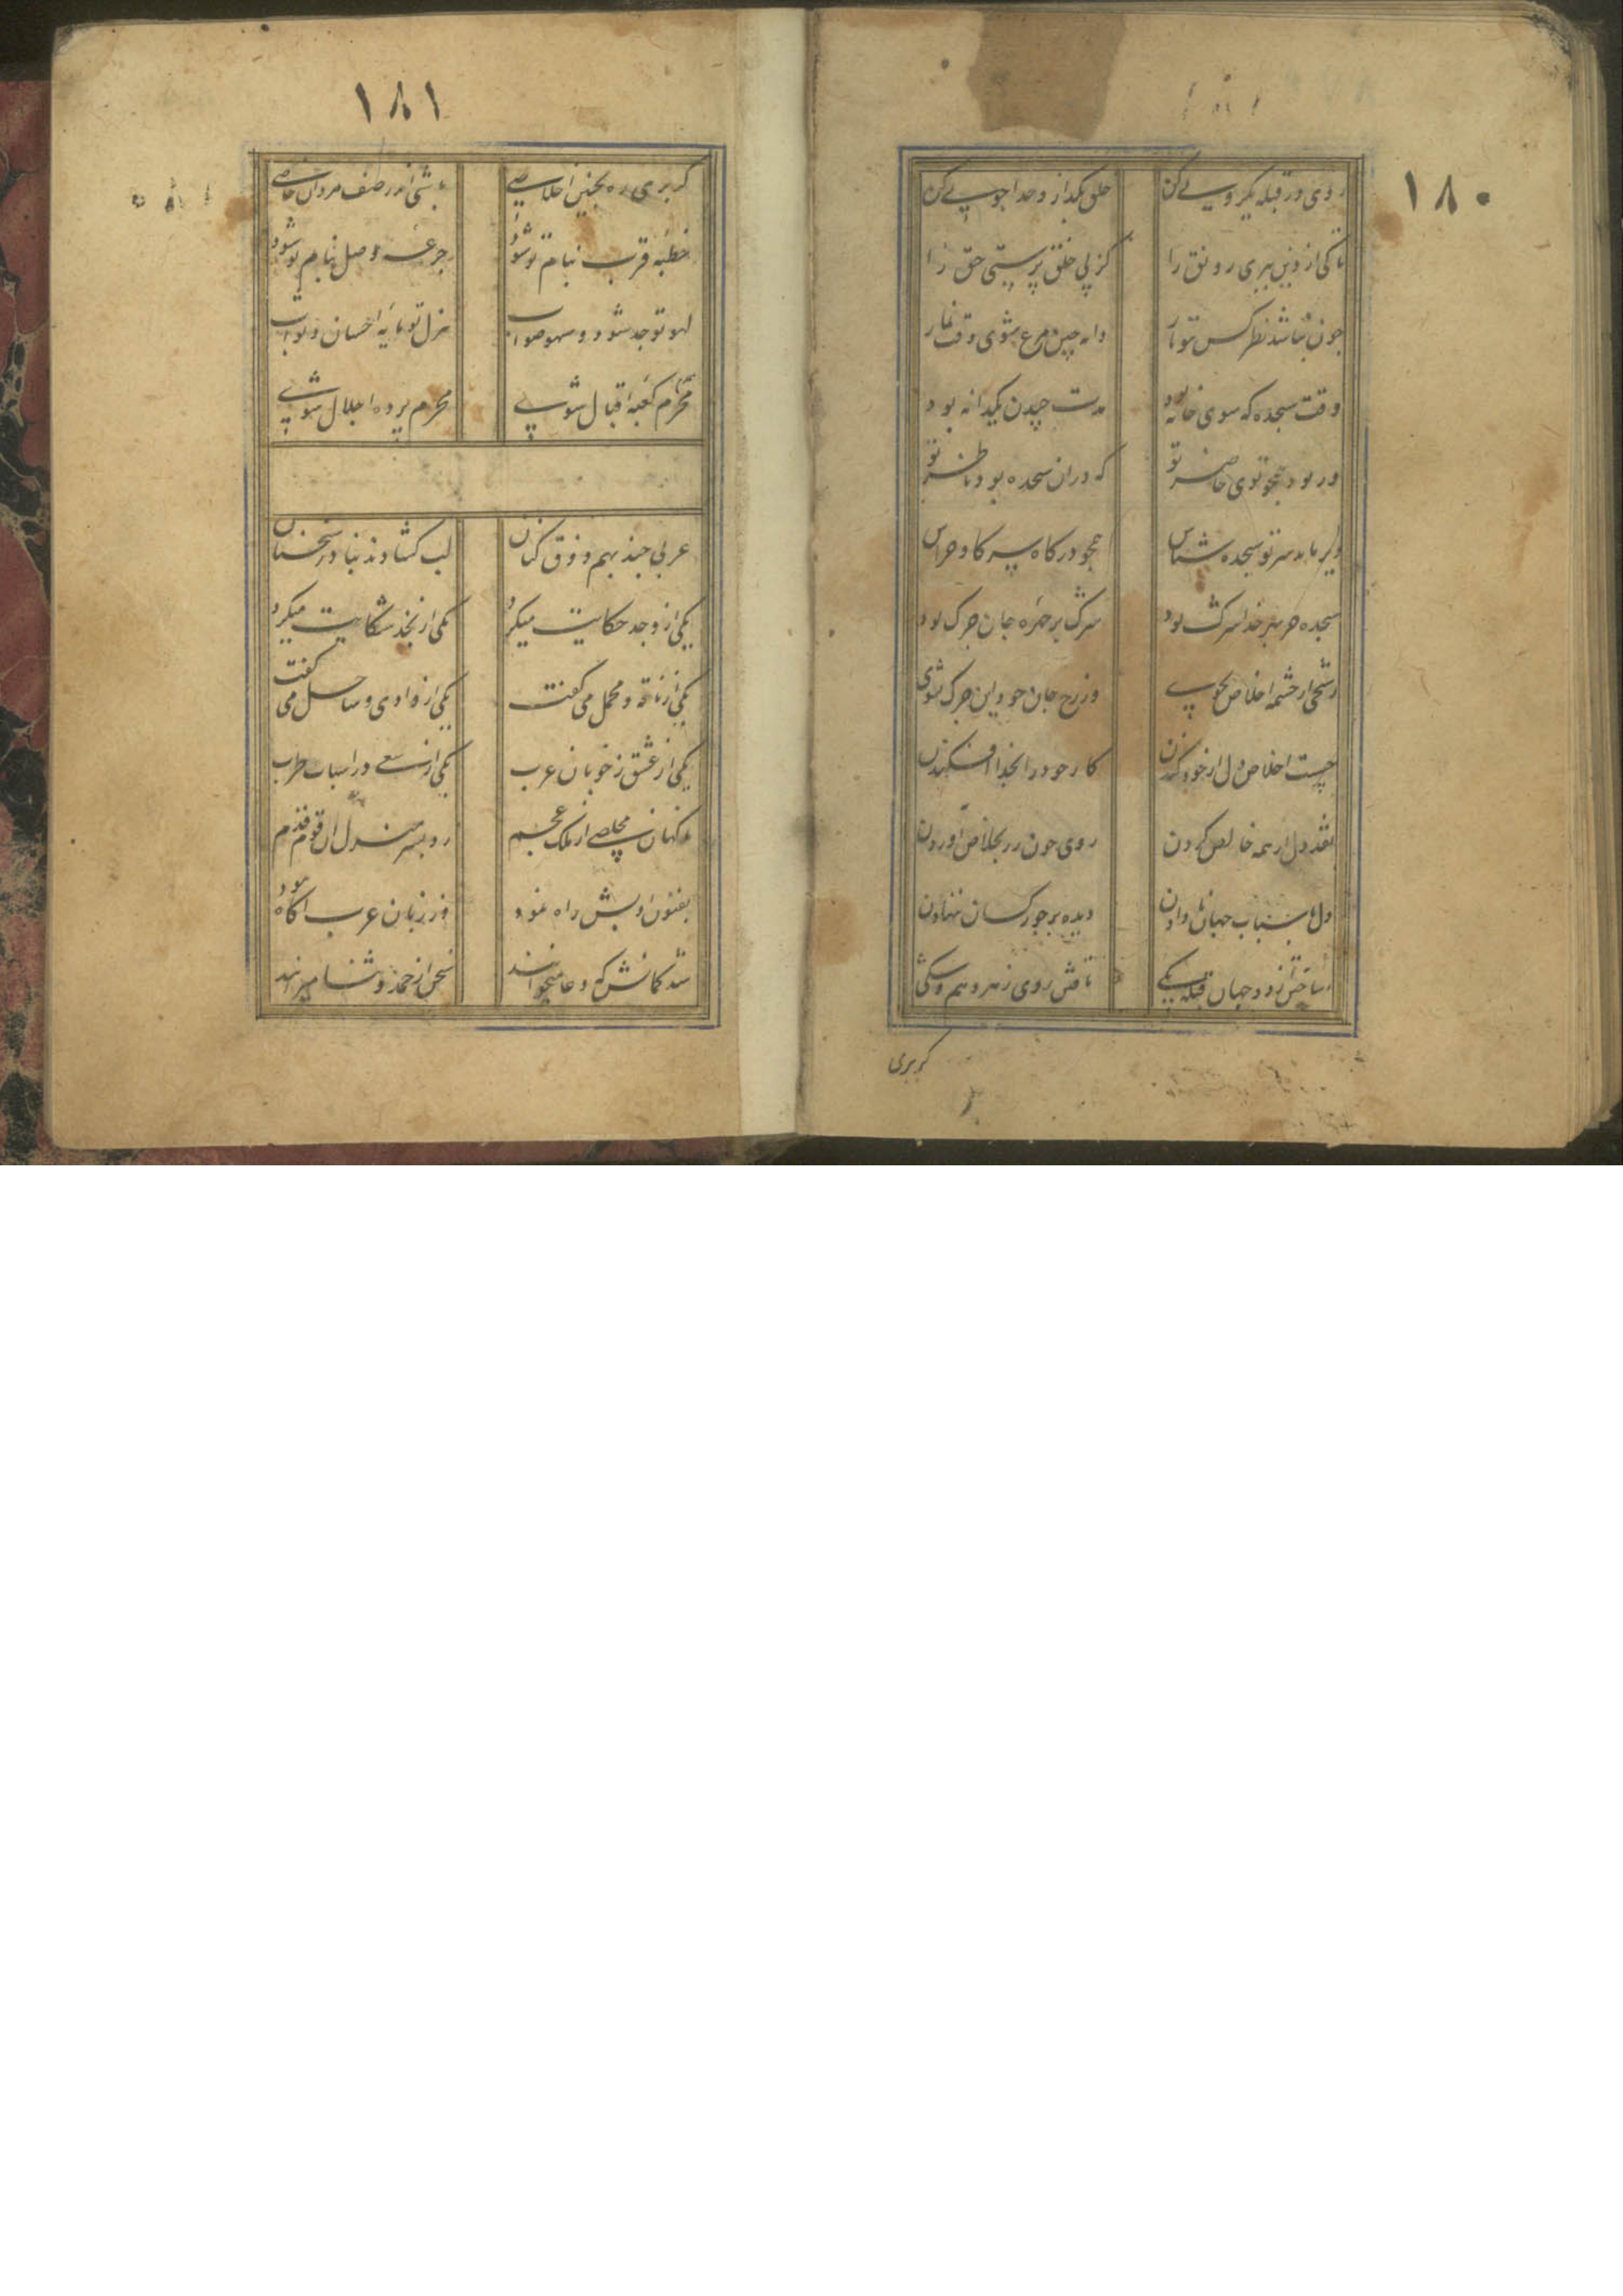 ١٨٠
روی در قبله یکرویی کن
خلق بگذار و خدا جویی کن
تا کی از دین ببری رونق را
کز پی خلق پرستی حق را
چون نباشد نظر کس سوی تو
دانه چین مرغ شوی وقت نماز
وقت سجده که سوی خانه بود
مدت چیدن یکدانه بود
ور بود همچو توی حاضر تو
که در آن سجده بود ناظر تو
دیر ماند سر تو سجده شناس
همچو در کاه سر کاو خراس
سجده هر بهر خدا سرک بود
سرک بر چهره جان چرک بود
رشحی از چشمه اخلاص بجوی
وز رخ جان خود این چرک بشوی
چیست اخلاص دل از خود کندن
کار خود را بخدا افکندن
نقد دل از همه خالص کردن
روی چون زر بخلاص آوردن
دل باسباب جهان نادادن
دیده بر جور کسان ننهادن
ساختن از دو جهان قبله یکی
تافتن روی ز هر وهم و شکی
کر بری
١٨١
کر بری ره بچنین اخلاصی
باشی اندر صف مردان خاصی
خطبه قرب بنام تو شود
جرعه وصل بجام تو شود
لهو تو جد شود و سهو صواب
هزل تو مایه احسان و ثواب
محرم کعبه اقبال شوی
محرم پرده اجلال شوی
عربی چند بهم ذوق کنان
لب کشادند بنادر سخنان
یکی از وجد حکایت میکرد
یکی از نجد شکایت میکرد
یکی از ناقه و محمل می کفت
یکی از وادی و ساحل می کفت
یکی از عشق ز خوبان عرب
یکی از سعی در اسباب طرب
ناکهان مخلصی از ملک عجم
زد بسر منزل آن قوم قدم
بفنون ادبش راه نمود
وز زبان عرب آکاه نبود
شد کمانش که دعا میخوانند
سخن از حمد و ثنا میرانند